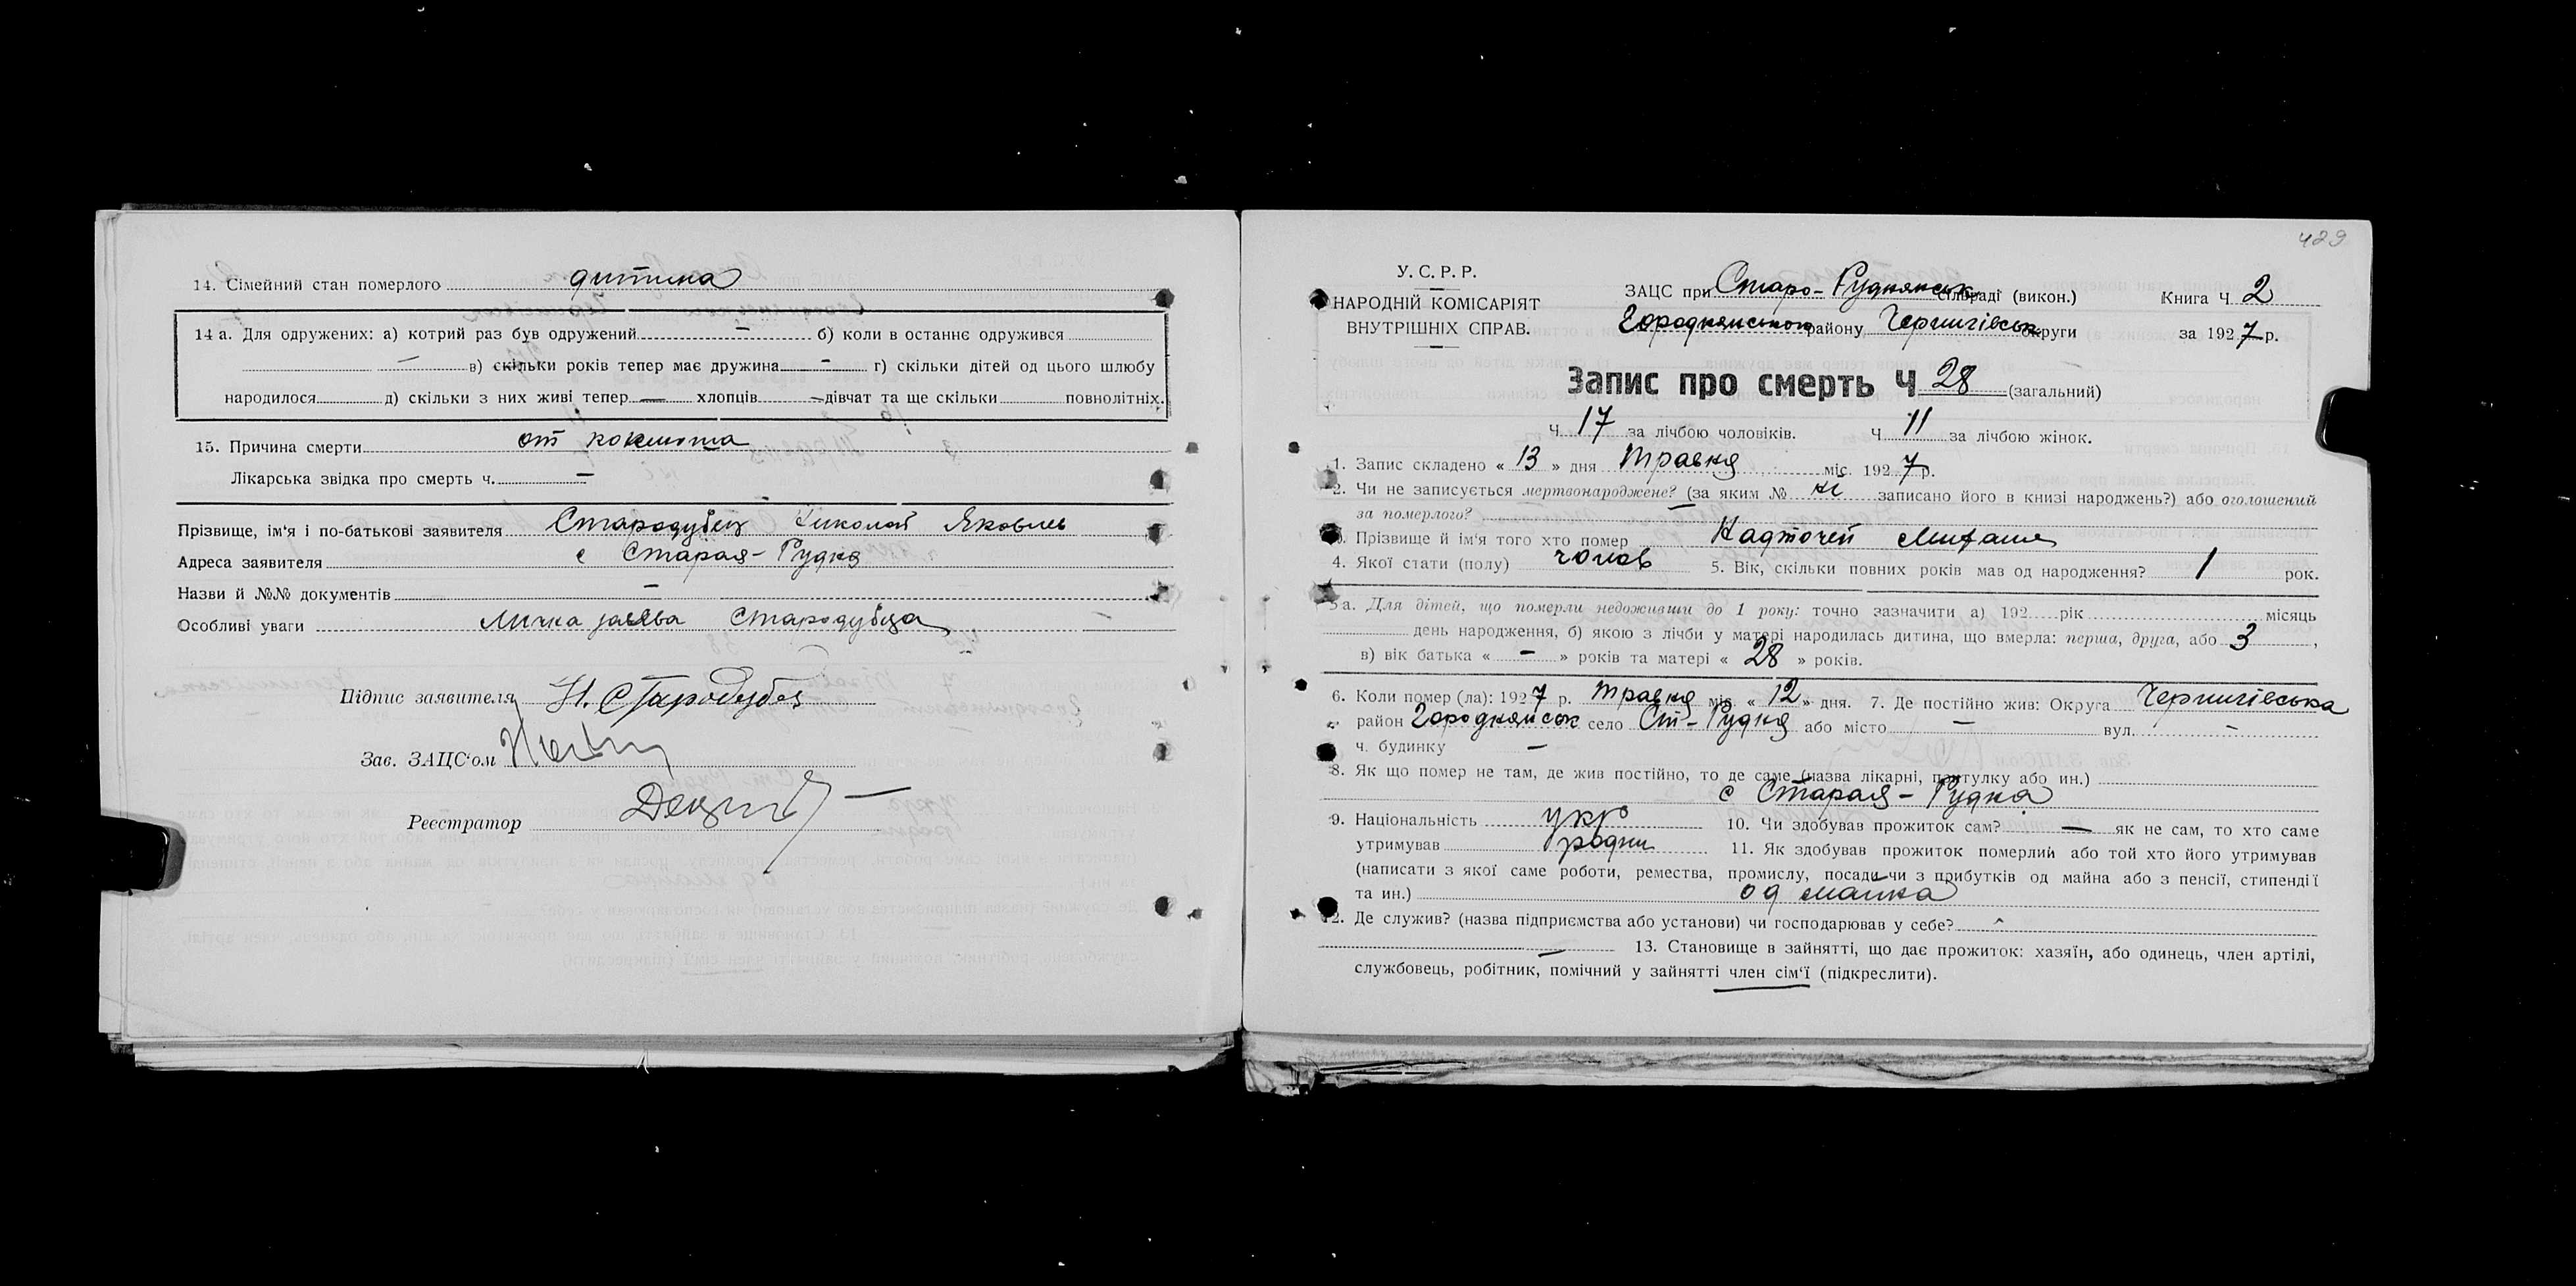 14. Сімейний стан померлого дитина
14 а. Для одружених: а) котрий раз був одружений — б) коли в останнє одружився
— в) скільки років тепер має дружина - г) скільки дітей од цього шлюбу
народилося д) скільки з них живі тепер — хлопців — дівчат та ще скільки повнолітніх.
15. Причина смерти от коклюша
Лікарська звідка про смерть ч. —
Прізвище, ім'я і по-батькові заявителя Стародубец Николай Яковлев
Адреса заявителя с Старая-Рудка
Назви й №№ документів —
Особливі уваги Лична заява Стародубца —
Підпис заявителя Н. Стародубец
Зав. ЗАЦС'ом
Реєстратор
429
У. С. Р. Р.
НАРОДНІЙ КОМІСАРІЯТ
ВНУТРІШНІХ СПРАВ.
ЗАЦС при Старо-Руднянськ сільраді (викон.) Книга Ч 2
Городнянського району Чернигівськ округи за 1927 р.
Запис про смерть Ч 28 (загальний)
Ч 17 за лічбою чоловіків. Ч 11 за лічбою жінок.
1. Запис складено « 13 » дня Травня міс. 1927 р.
2. Чи не записується мертвонароджене? (за яким № ні записано його в книзі народжень?) або оголошений
за померлого? —
3. Прізвище й ім'я того хто помер Надточей
4. Якої стати (полу) чолов 5. Вік, скільки повних років мав од народження? 1 рок.
5а. Для дітей, що померли недоживши до 1 року: точно зазначити а) 192 рік місяць
день народження, б) якою з лічби у матері народилась дитина, що вмерла: перша, друга, або 3,
в) вік батька « — » років та матері « 28 » років.
6. Коли помер (ла): 1927 р. Травня міс. « 12 » дня. 7. Де постійно жив: Округа Чернигівська
район Городнянськ село Ст-Рудня або місто — вул. —
ч. будинку —
8. Як що помер не там, де жив постійно, то де саме (назва лікарні, притулку або ин.)
с Старая-Рудка
9. Національність укр 10. Чи здобував прожиток сам? — як не сам, то хто саме
утримував родни 11. Як здобував прожиток померлий або той хто його утримував
(написати з якої саме роботи, ремества, промислу, посади чи з прибутків од майна або з пенсії, стипендії
та ин.) од
12. Де служив? (назва підприємства або установи) чи господарював у себе?
— 13. Становище в зайнятті, що дає прожиток: хазяїн, або одинець, член артілі,
службовець, робітник, помічний у зайнятті член сім'ї (підкреслити).